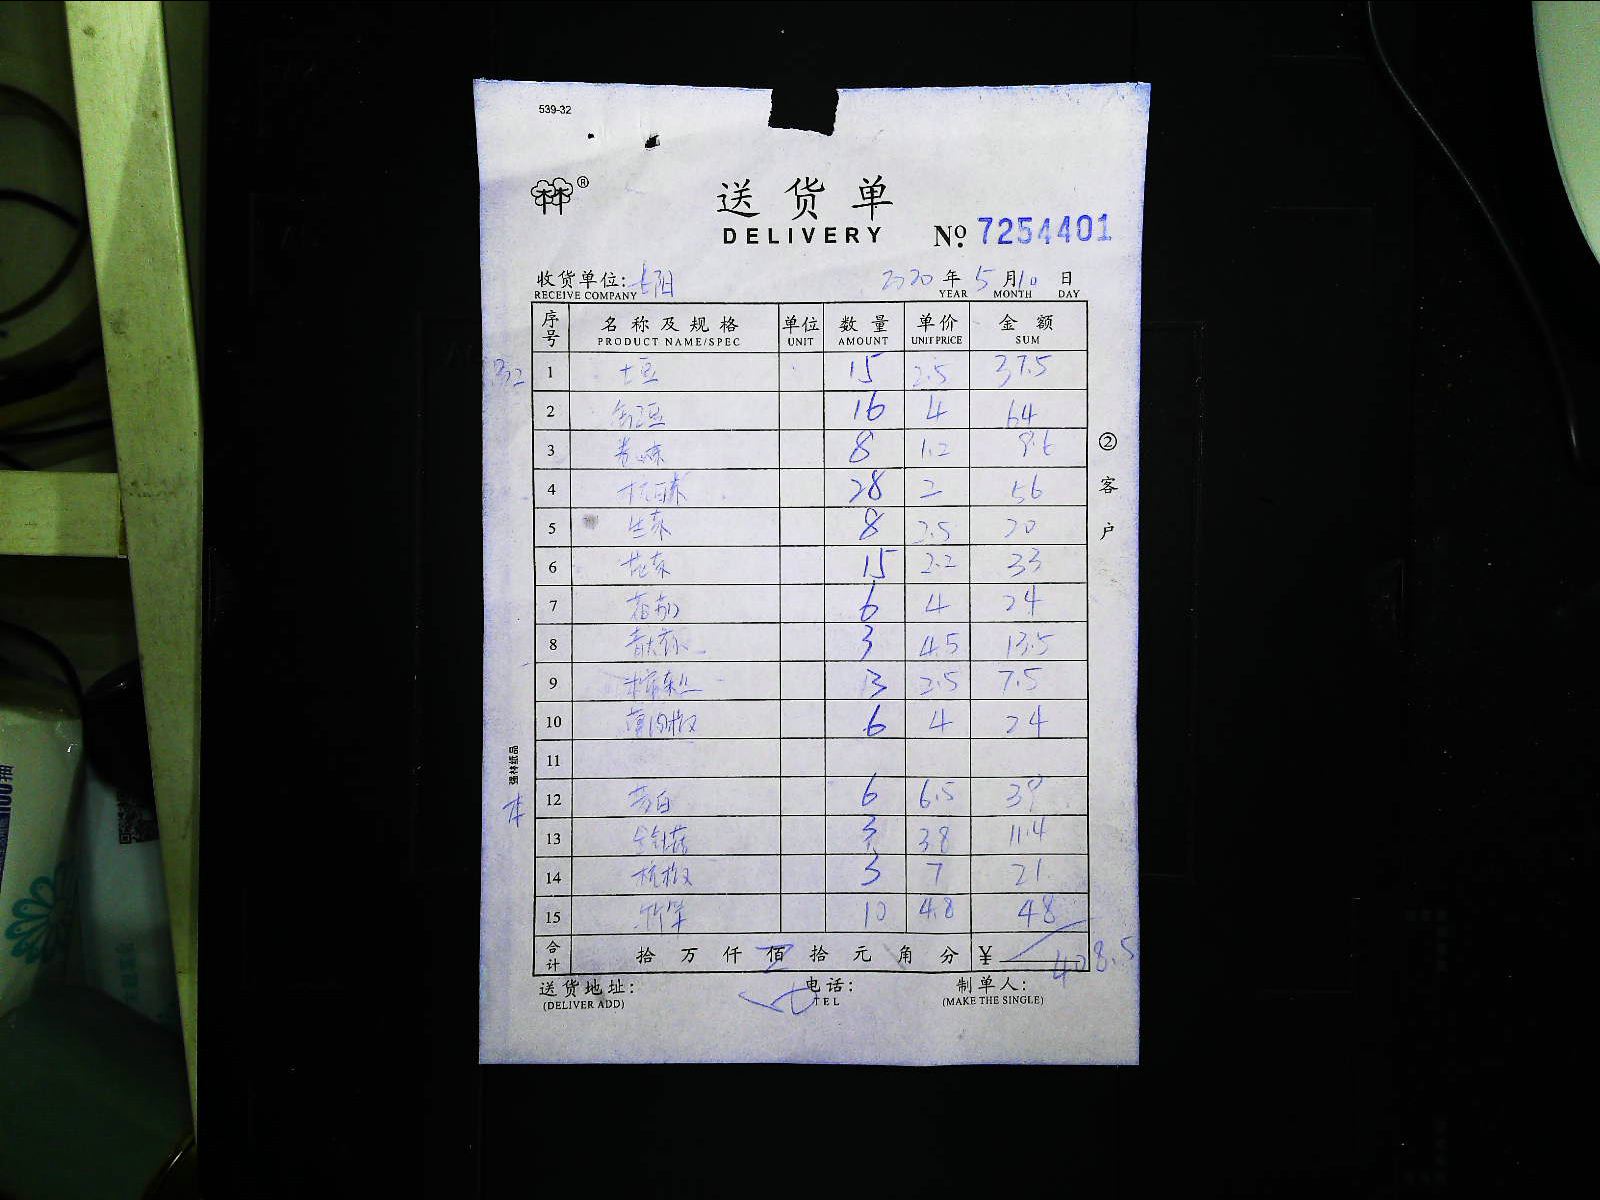 539-32
®
送货单
DELIVERY
№ 7254401
收货单位: 2020 年 5 月 10 日
RECEIVE COMPANY YEAR MONTH DAY
序号 名称及规格 单位 数量 单价 金额
PRODUCT NAME/SPEC UNIT AMOUNT UNIT PRICE SUM
1 土豆 15 2.5 37.5
2 16 4 64
3 8 1.2 9.6
4 28 2 56
5 生菜 8 2.5 20
6 15 2.2 33
7 6 4 24
8 3 4.5 13.5
9 3 2.5 7.5
10 6 4 24
11
12 6 6.5 39
13 金针菇 3 3.8 11.4
14 杭椒 3 7 21
15 10 4.8 48
合计 拾 万 仟 佰 拾 元 角 分 ¥ 408.5
送货地址: 电话: 制单人:
(DELIVER ADD) TEL (MAKE THE SINGLE)
②客户
强林纸品